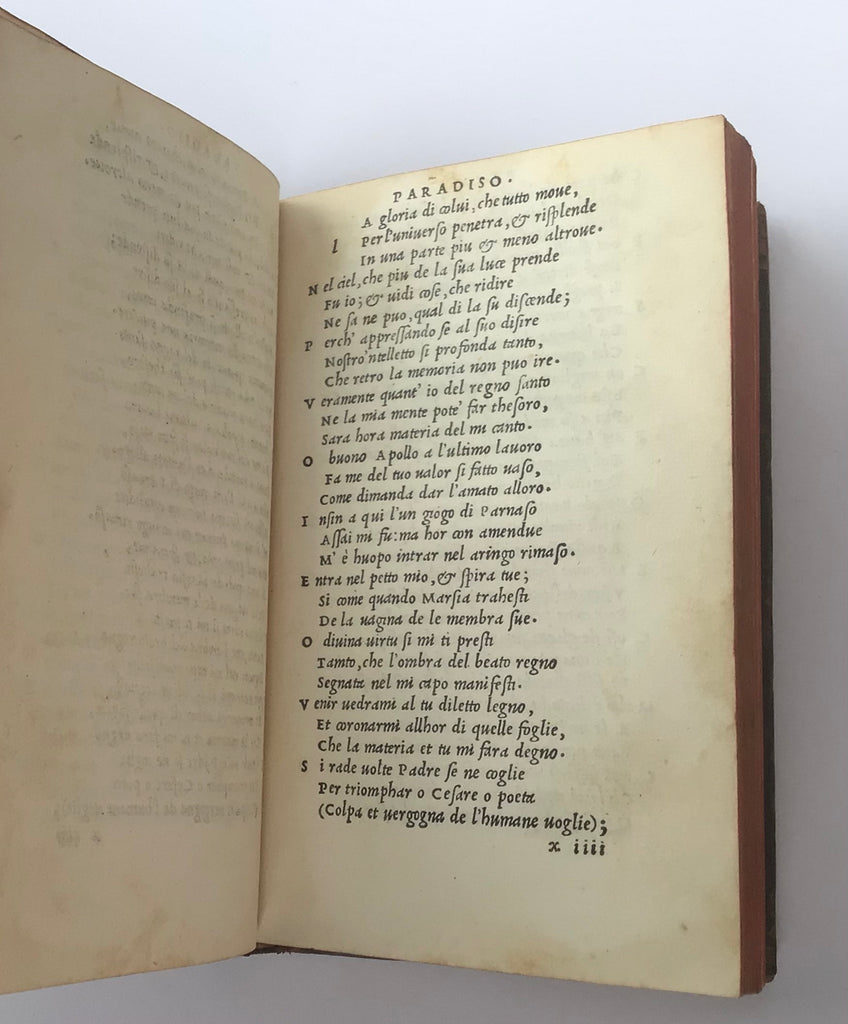 PARADISO.
l A gloria di colui, che tutto moue,
Per l'uniuerso penetra, & risplende
In una parte piu & meno altroue.
N el ciel, che piu de la sua luce prende
Fu io; & uidi cose, che ridire
Ne sa ne puo, qual di la su discende;
P erch' appressando se al suo disire
Nostro'ntelletto si profonda tanto,
Che retro la memoria non puo ire.
V eramente quant' io del regno santo
Ne la mia mente pote' far thesoro,
Sara hora materia del mi canto.
O buono Apollo a l'ultimo lauoro
Fa me del tuo ualor si fatto uaso,
Come dimanda dar l'amato alloro.
I nsin a qui l'un giogo di Parnaso
Assai mi fu: ma hor con amendue
M' è huopo intrar nel aringo rimaso.
E ntra nel petto mio, & spira tue;
Si come quando Marsia trahesti
De la uagina de le membra sue.
O diuina uirtu si mi ti presti
Tamto, che l'ombra del beato regno
Segnata nel mi capo manifesti.
V enir uedrami al tu diletto legno,
Et coronarmi allhor di quelle foglie,
Che la materia et tu mi fara degno.
S i rade uolte Padre se ne coglie
Per triomphar o Cesare o poeta
(Colpa et uergogna de l'humane uoglie);
x iiii